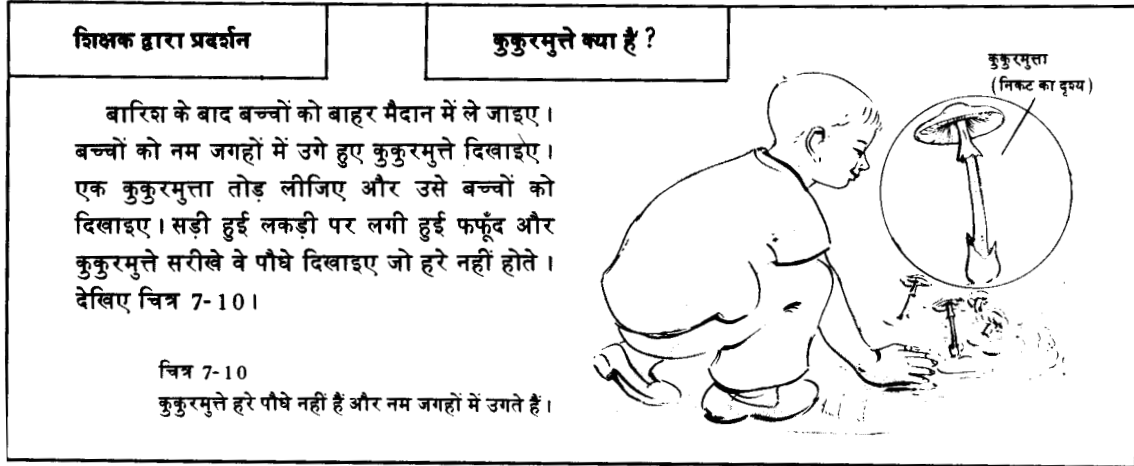 शिक्षक द्वारा प्रदर्शन
कुकुरमुत्ते क्या हैं ?
बारिश के बाद बच्चों को बाहर मैदान में ले जाइए।
बच्चों को नम जगहों में उगे हुए कुकुरमुत्ते दिखाइए।
एक कुकुरमुत्ता तोड़ लीजिए और उसे बच्चों को
दिखाइए। सड़ी हुई लकड़ी पर लगी हुई फफूँद और
कुकुरमुत्ते सरीखे वे पौधे दिखाइए जो हरे नहीं होते।
देखिए चित्र 7-10।
चित्र 7-10
कुकुरमुत्ते हरे पौधे नहीं हैं और नम जगहों में उगते हैं।
कुकुरमुत्ता
(निकट का दृश्य)